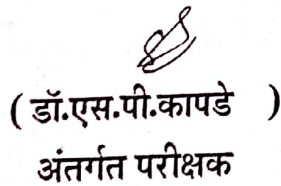 ( डॉ.एस.पी.कापडे )
अंतर्गत परीक्षक